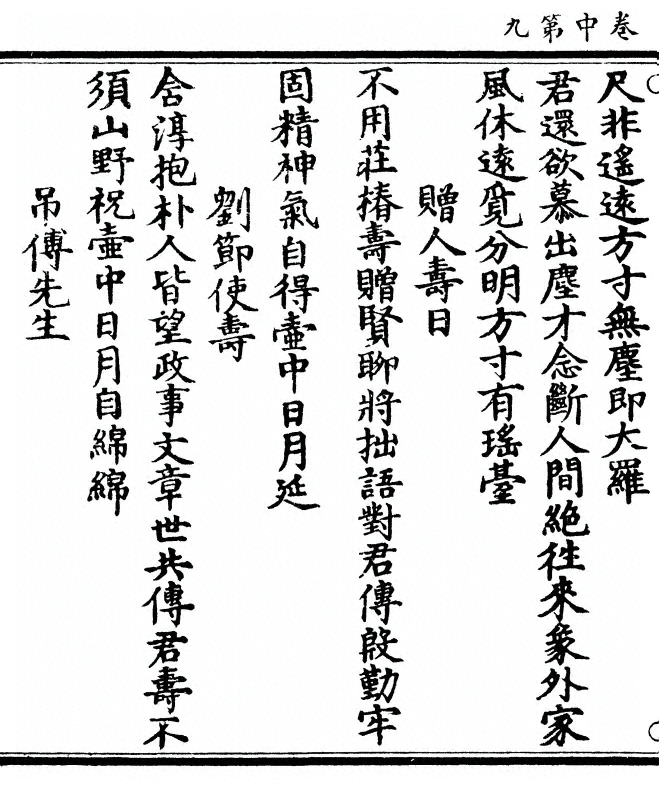 卷中第九
尺非遙遠方寸無塵即大羅
君還欲慕出塵才念斷人間絶徃來象外家
風休遠覓分明方寸有瑤臺
贈人壽日
不用莊椿壽贈賢聊將拙語對君傳慇勤牢
固精神氣自得壺中日月延
劉節使壽
含淳抱朴人皆望政事文章世共傳君壽不
須山野祝壺中日月自綿綿
吊傅先生